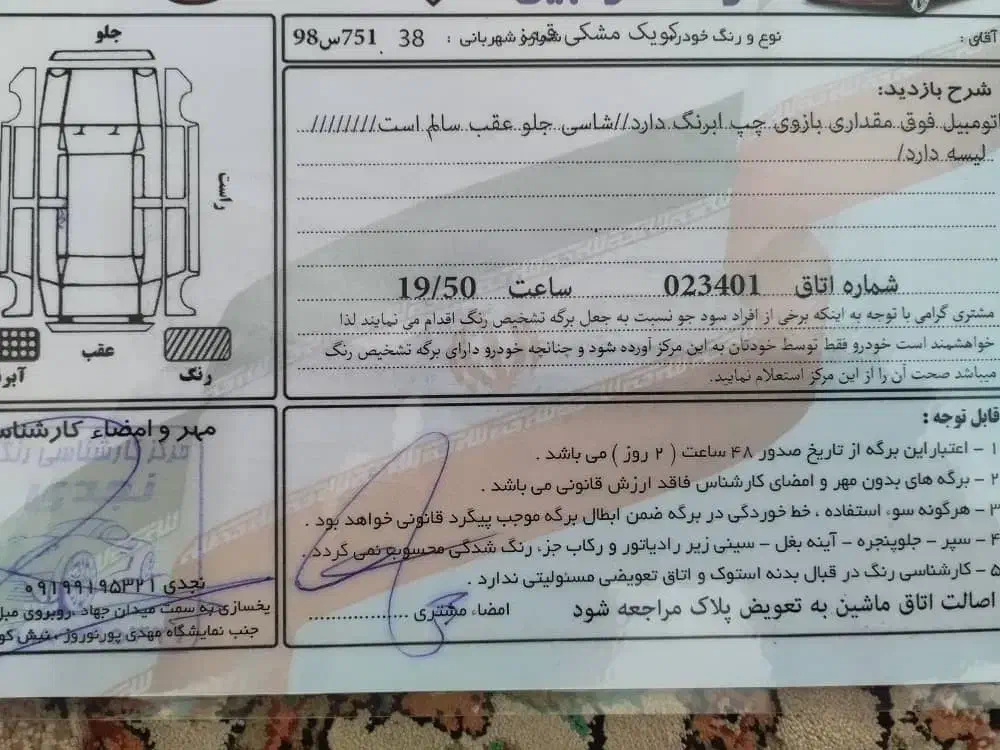 آقای :
نوع و رنگ خودرو کویک مشکی قرمز
شماره شهربانی : 38 751س98
شرح بازدید:
اتومبیل فوق مقداری بازوی چپ ابرنگ دارد//شاسی جلو عقب سالم است////////
لیسه دارد/
شماره اتاق 023401 ساعت 19/50
مشتری گرامی با توجه به اینکه برخی از افراد سود جو نسبت به جعل برگه تشخیص رنگ اقدام می نمایند لذا
خواهشمند است خودرو فقط توسط خودتان به این مرکز آورده شود و چنانچه خودرو دارای برگه تشخیص رنگ
میباشد صحت آن را از این مرکز استعلام نمایید.
جلو
راست
عقب
رنگ
قابل توجه :
۱ - اعتبار این برگه از تاریخ صدور ۴۸ ساعت ( ۲ روز ) می باشد .
۲ - برگه های بدون مهر و امضای کارشناس فاقد ارزش قانونی می باشد .
۳ - هرگونه سوء استفاده ، خط خوردگی در برگه ضمن ابطال برگه موجب پیگرد قانونی خواهد بود .
۴ - سپر - جلوپنجره - آینه بغل - سینی زیر رادیاتور و رکاب جزء رنگ شدگی محسوب نمی گردد .
۵ - کارشناسی رنگ در قبال بدنه استوک و اتاق تعویضی مسئولیتی ندارد .
اصالت اتاق ماشین به تعویض پلاک مراجعه شود
امضاء مشتری ...................
مهر و امضاء کارشناس
مرکز کارشناسی رنگ
نجدی
نجدی ۰۹۱۹۹۱۹۵۳۲۱
یخسازی به سمت میدان جهاد ، روبروی مبل
جنب نمایشگاه مهدی پورنوروز ، نبش کو